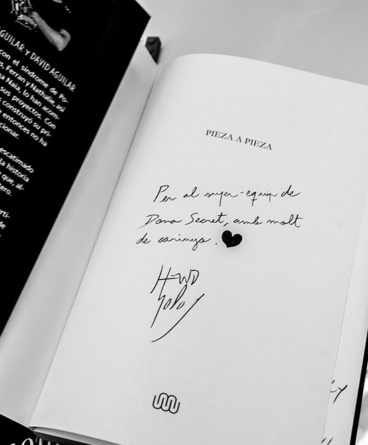 GUILAR Y DAVID AGUILAR
con el síndrome de Po-
s, Ferran y Nathalie, así
na Naia, lo han acom-
sus proyectos. Con
construyó su pri-
entonces no ha
cionar
escatimado
la historia
que al-
dero.
PIEZA A PIEZA
Per al super-equip de
Dona Secret, amb molt
de carinyo.